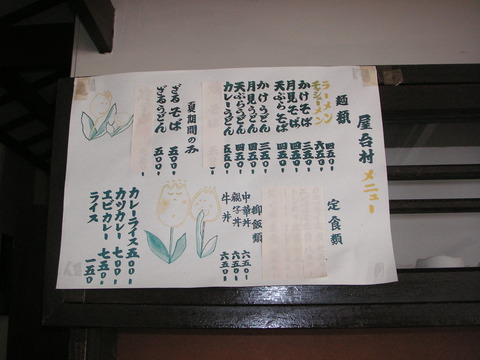 屋台村 メニュー
麺類
ラーメン 四五〇-
六五〇-
かけそば 三五〇-
月見そば 四五〇-
天ぷらそば 四五〇-
かけうどん 三五〇-
月見うどん 四五〇-
天ぷらうどん 四五〇-
カレーうどん 五五〇-
夏期間のみ
ざるそば 五〇〇-
ざるうどん 五〇〇-
定食類
御飯類
中華丼 六五〇-
親子丼 六五〇-
牛丼 六五〇-
カレーライス 五〇〇-
カツカレー 七〇〇-
エビカレー 七五〇-
ライス 一五〇